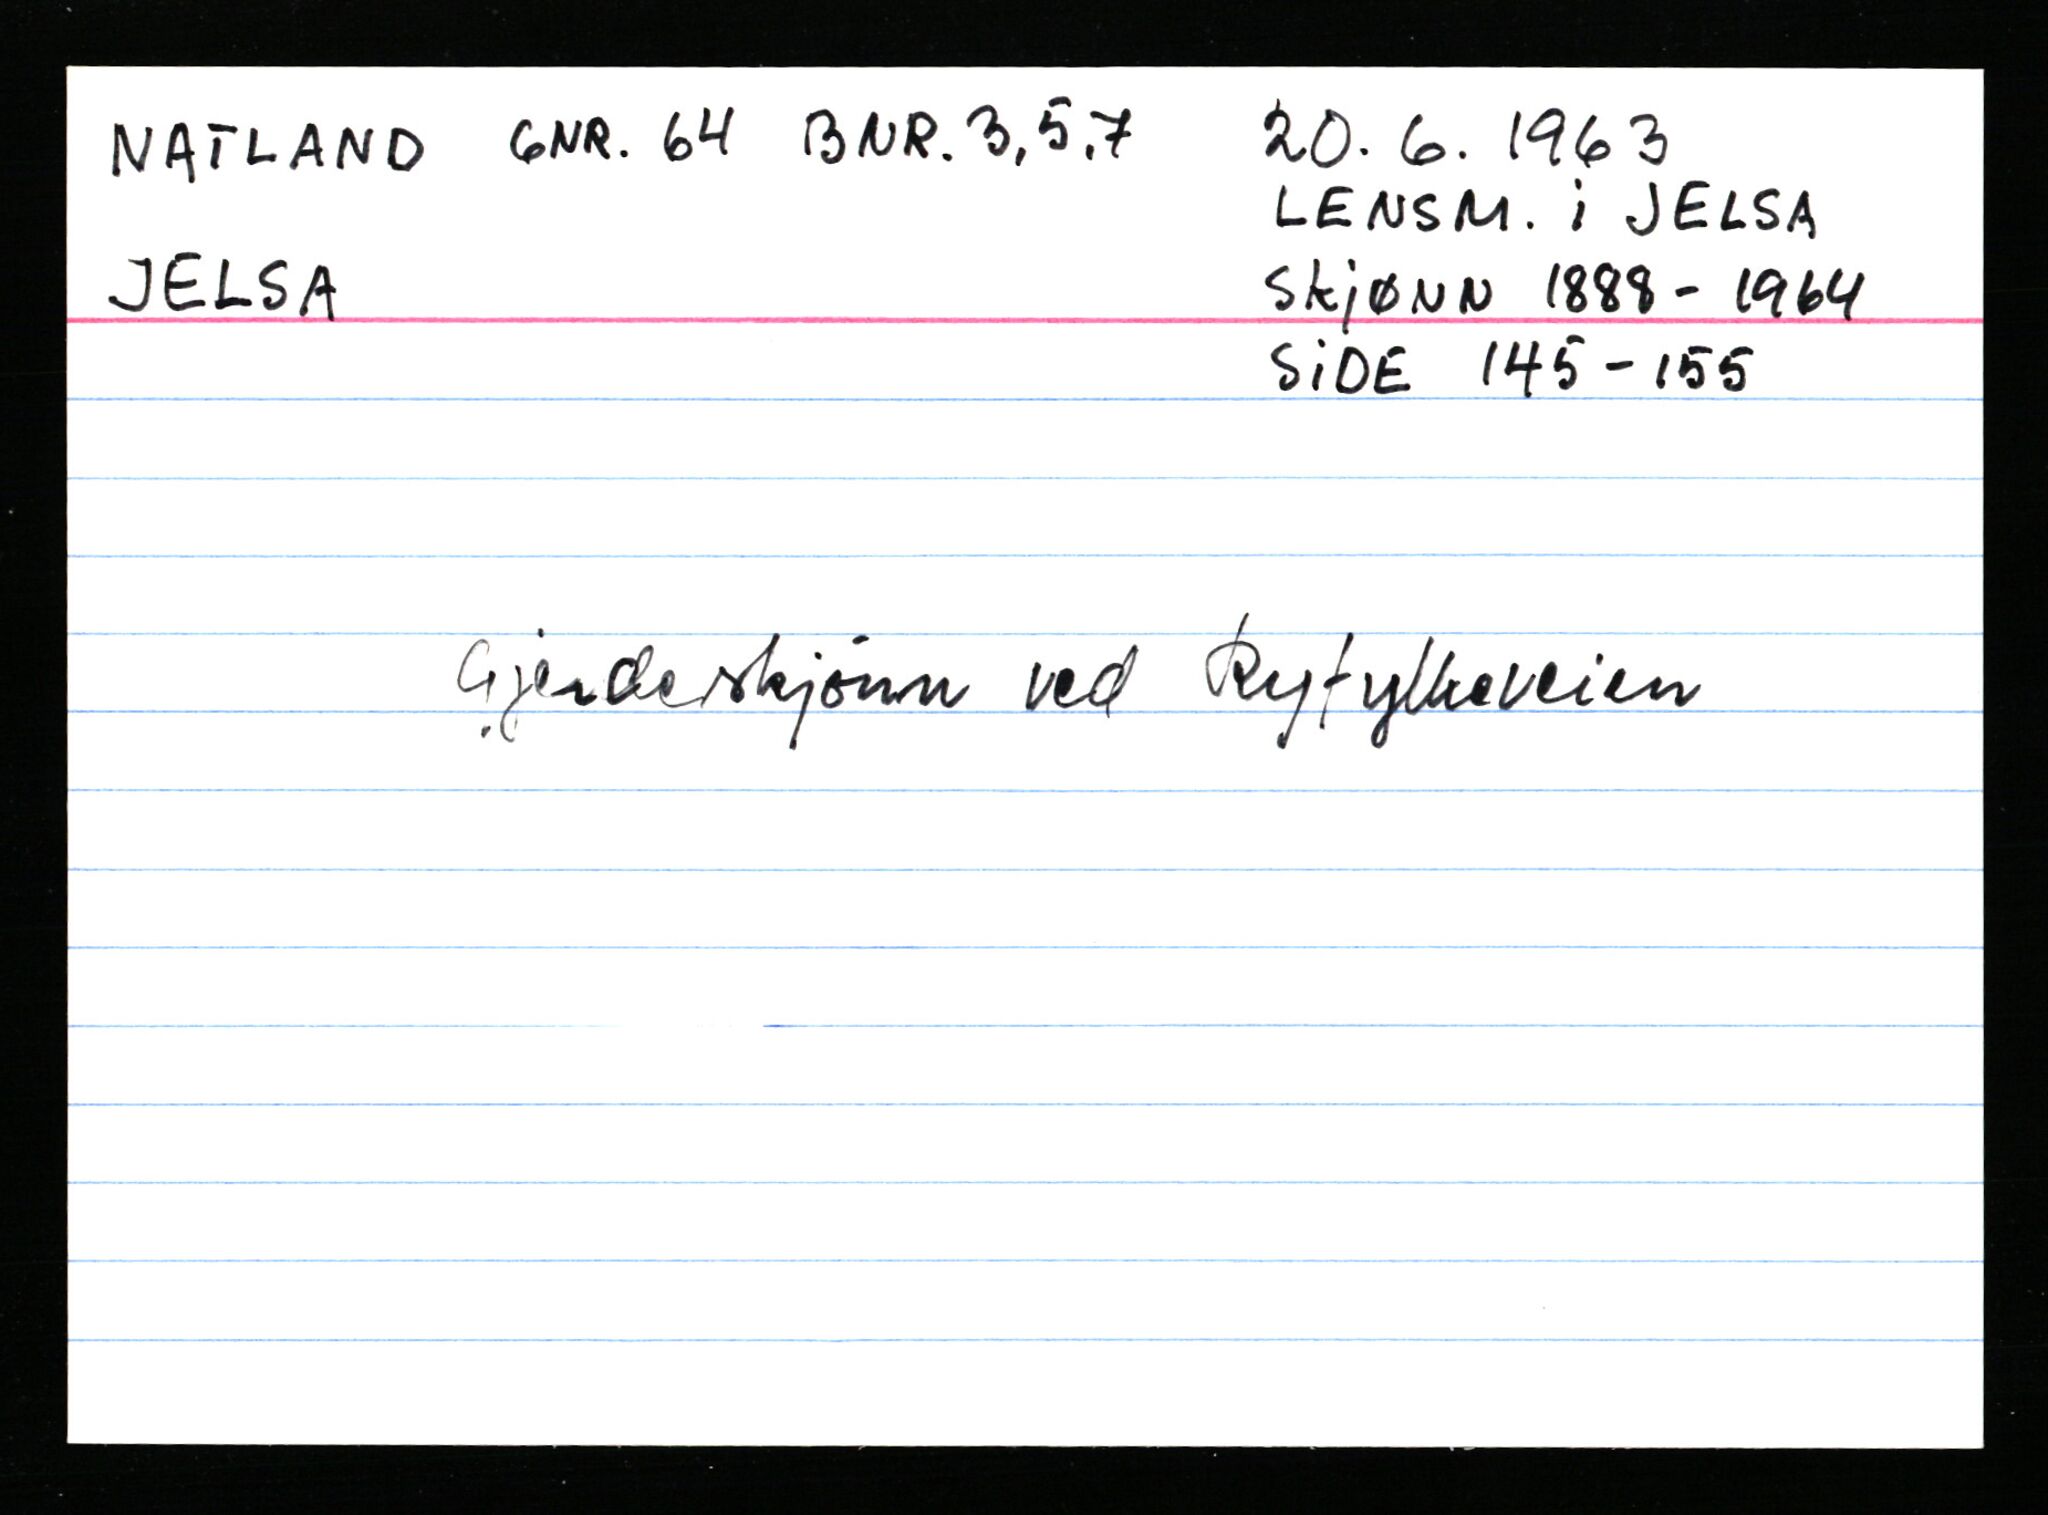 NATLAND GNR. 64 BNR. 3,5,7 20.6.1963
LENSM. i JELSA
JELSA SkjØNN 1888-1964
SiDE 145-155
Gjerdeskjönn ved Ryfylkeveien